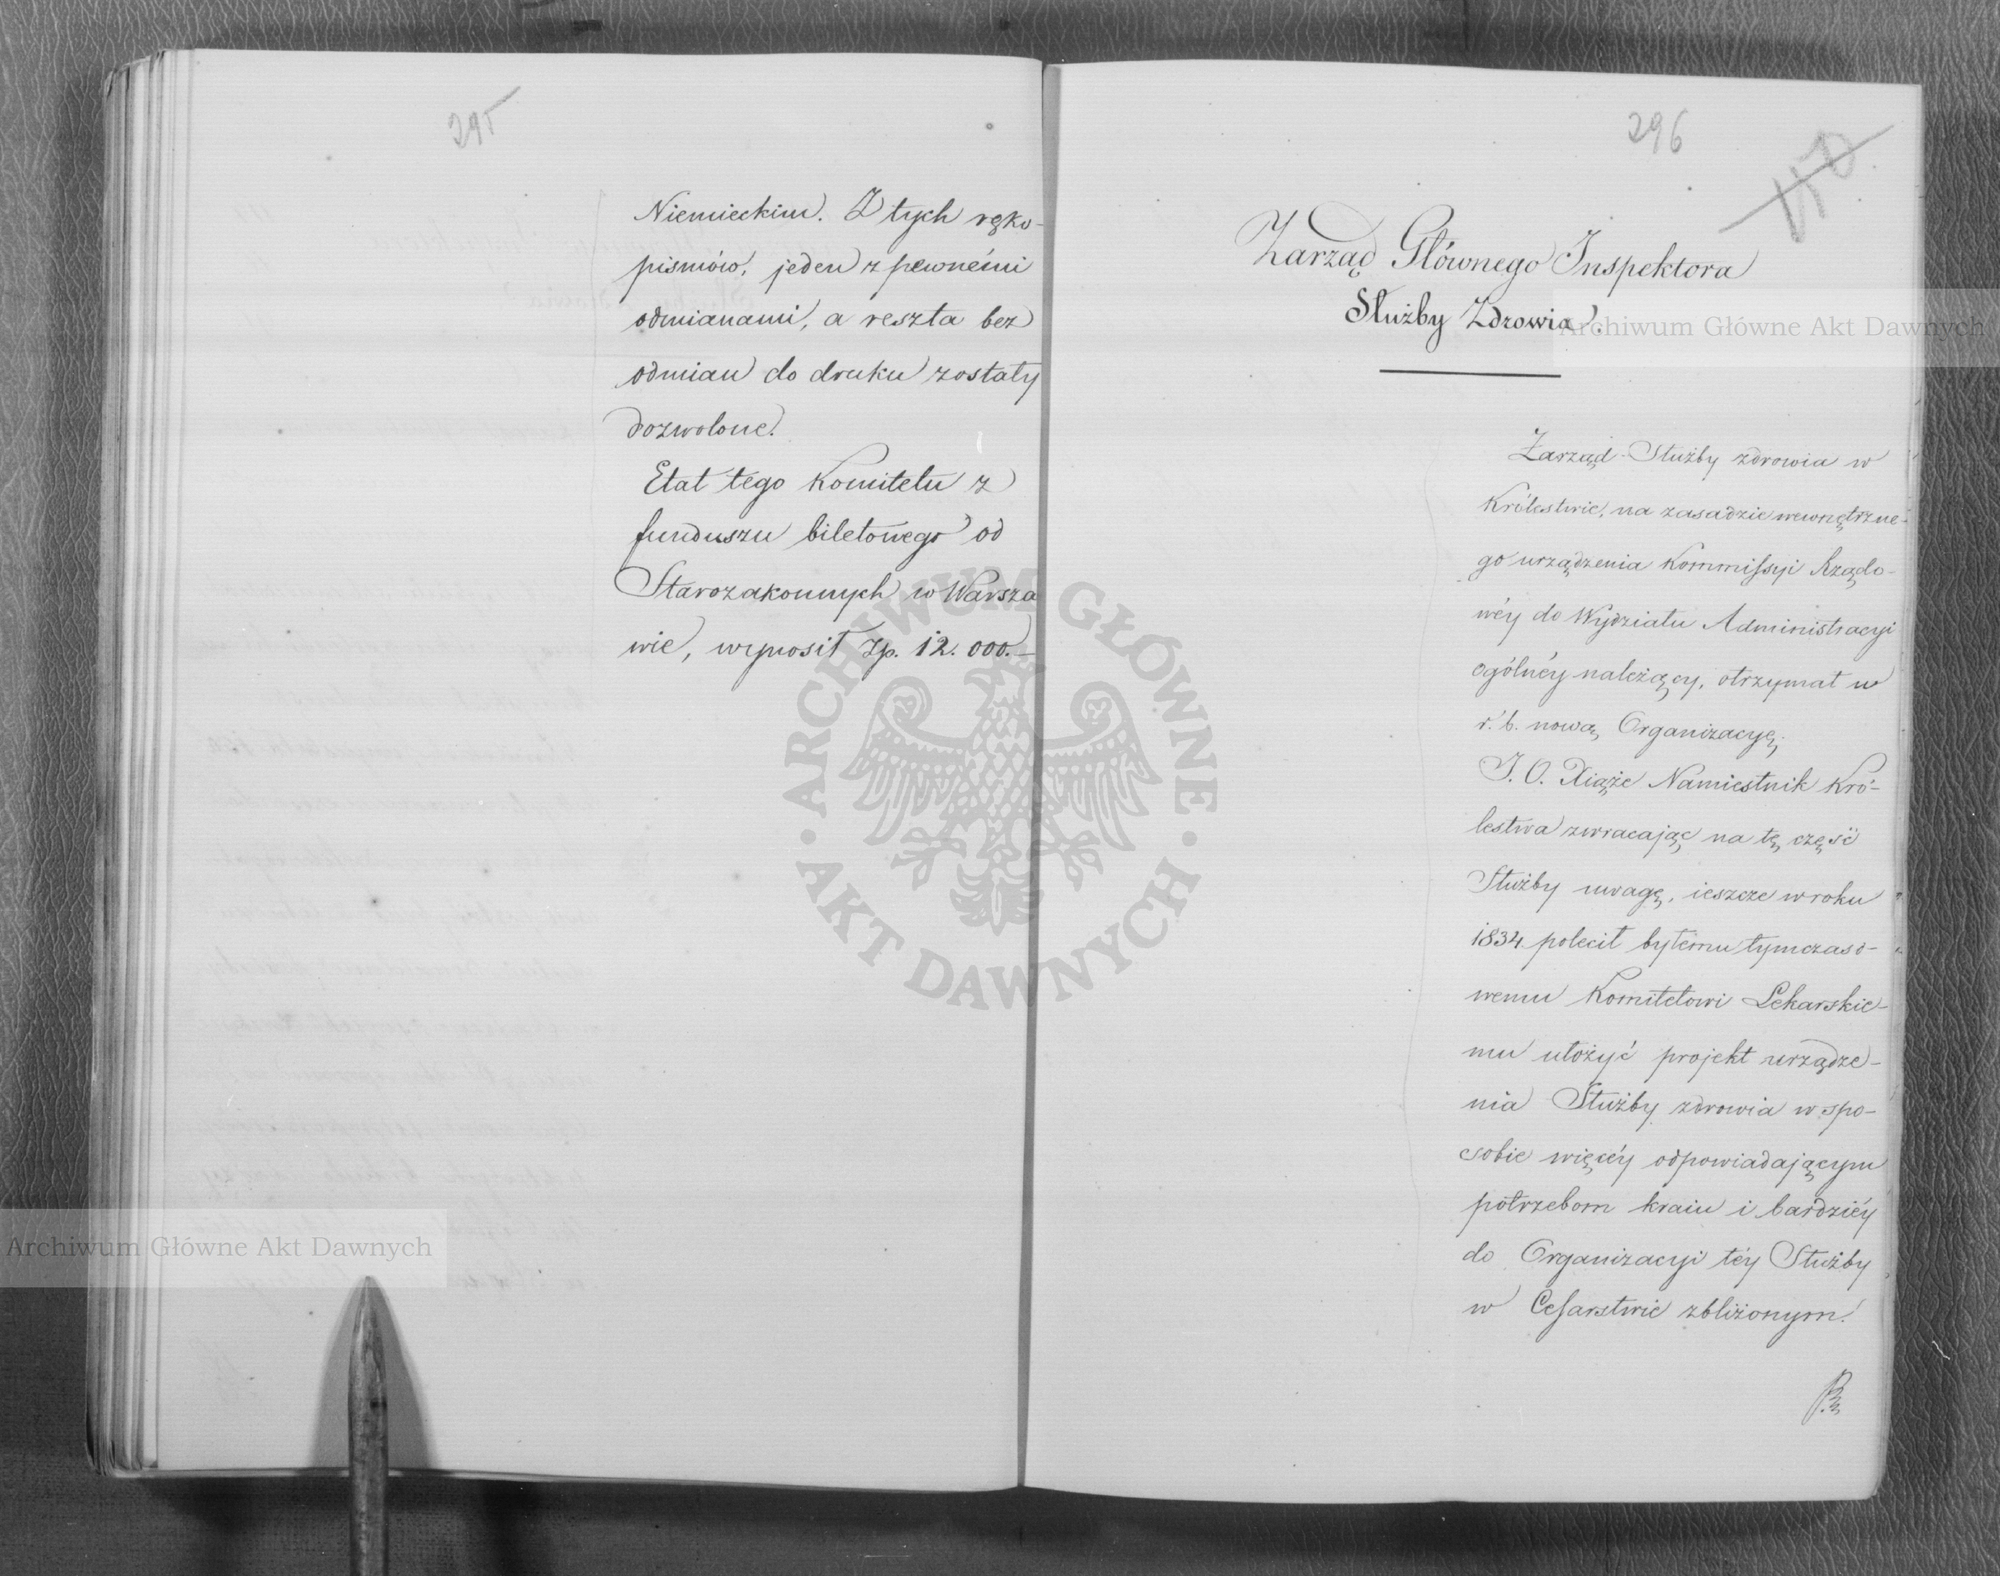 295
Niemieckim. Z tych ręko-
pismów, jeden z pewnémi
odmianami, a reszta bez
odmian do druku zostały
dozwolone.
Etat tego Komitetu z
funduszu biletowego od
Starozakonnych w Warsza
wie, wynosił Zp. 12.000.—
296
Zarząd Głównego Inspektora
Służby Zdrowia.
Zarząd Służby zdrowia w
Królestwie, na zasadzie wewnętrzne-
go urządzenia Kommissyi Rządo-
wéy do Wydziału Administracyi
ogólnéy należący, otrzymał w
r. b. nową Organizacyę.
J. O. Xiąże Namiestnik Kró-
lestwa zwracając na tę część
Służby uwagę, ieszcze w roku
1834 polecił byłemu tymczaso-
wemu Komitetowi Lekarskie-
mu ułożyć projekt urządze-
nia Służby zdrowia w spo-
sobie więcéy odpowiadającym
potrzebom kraiu i bardziéy
do Organizacyi téy Służby
w Cesarstwie zbliżonym.
Archiwum Główne Akt Dawnych
Archiwum Główne Akt Dawnych
ARCHIWUM GŁÓWNE
AKT DAWNYCH